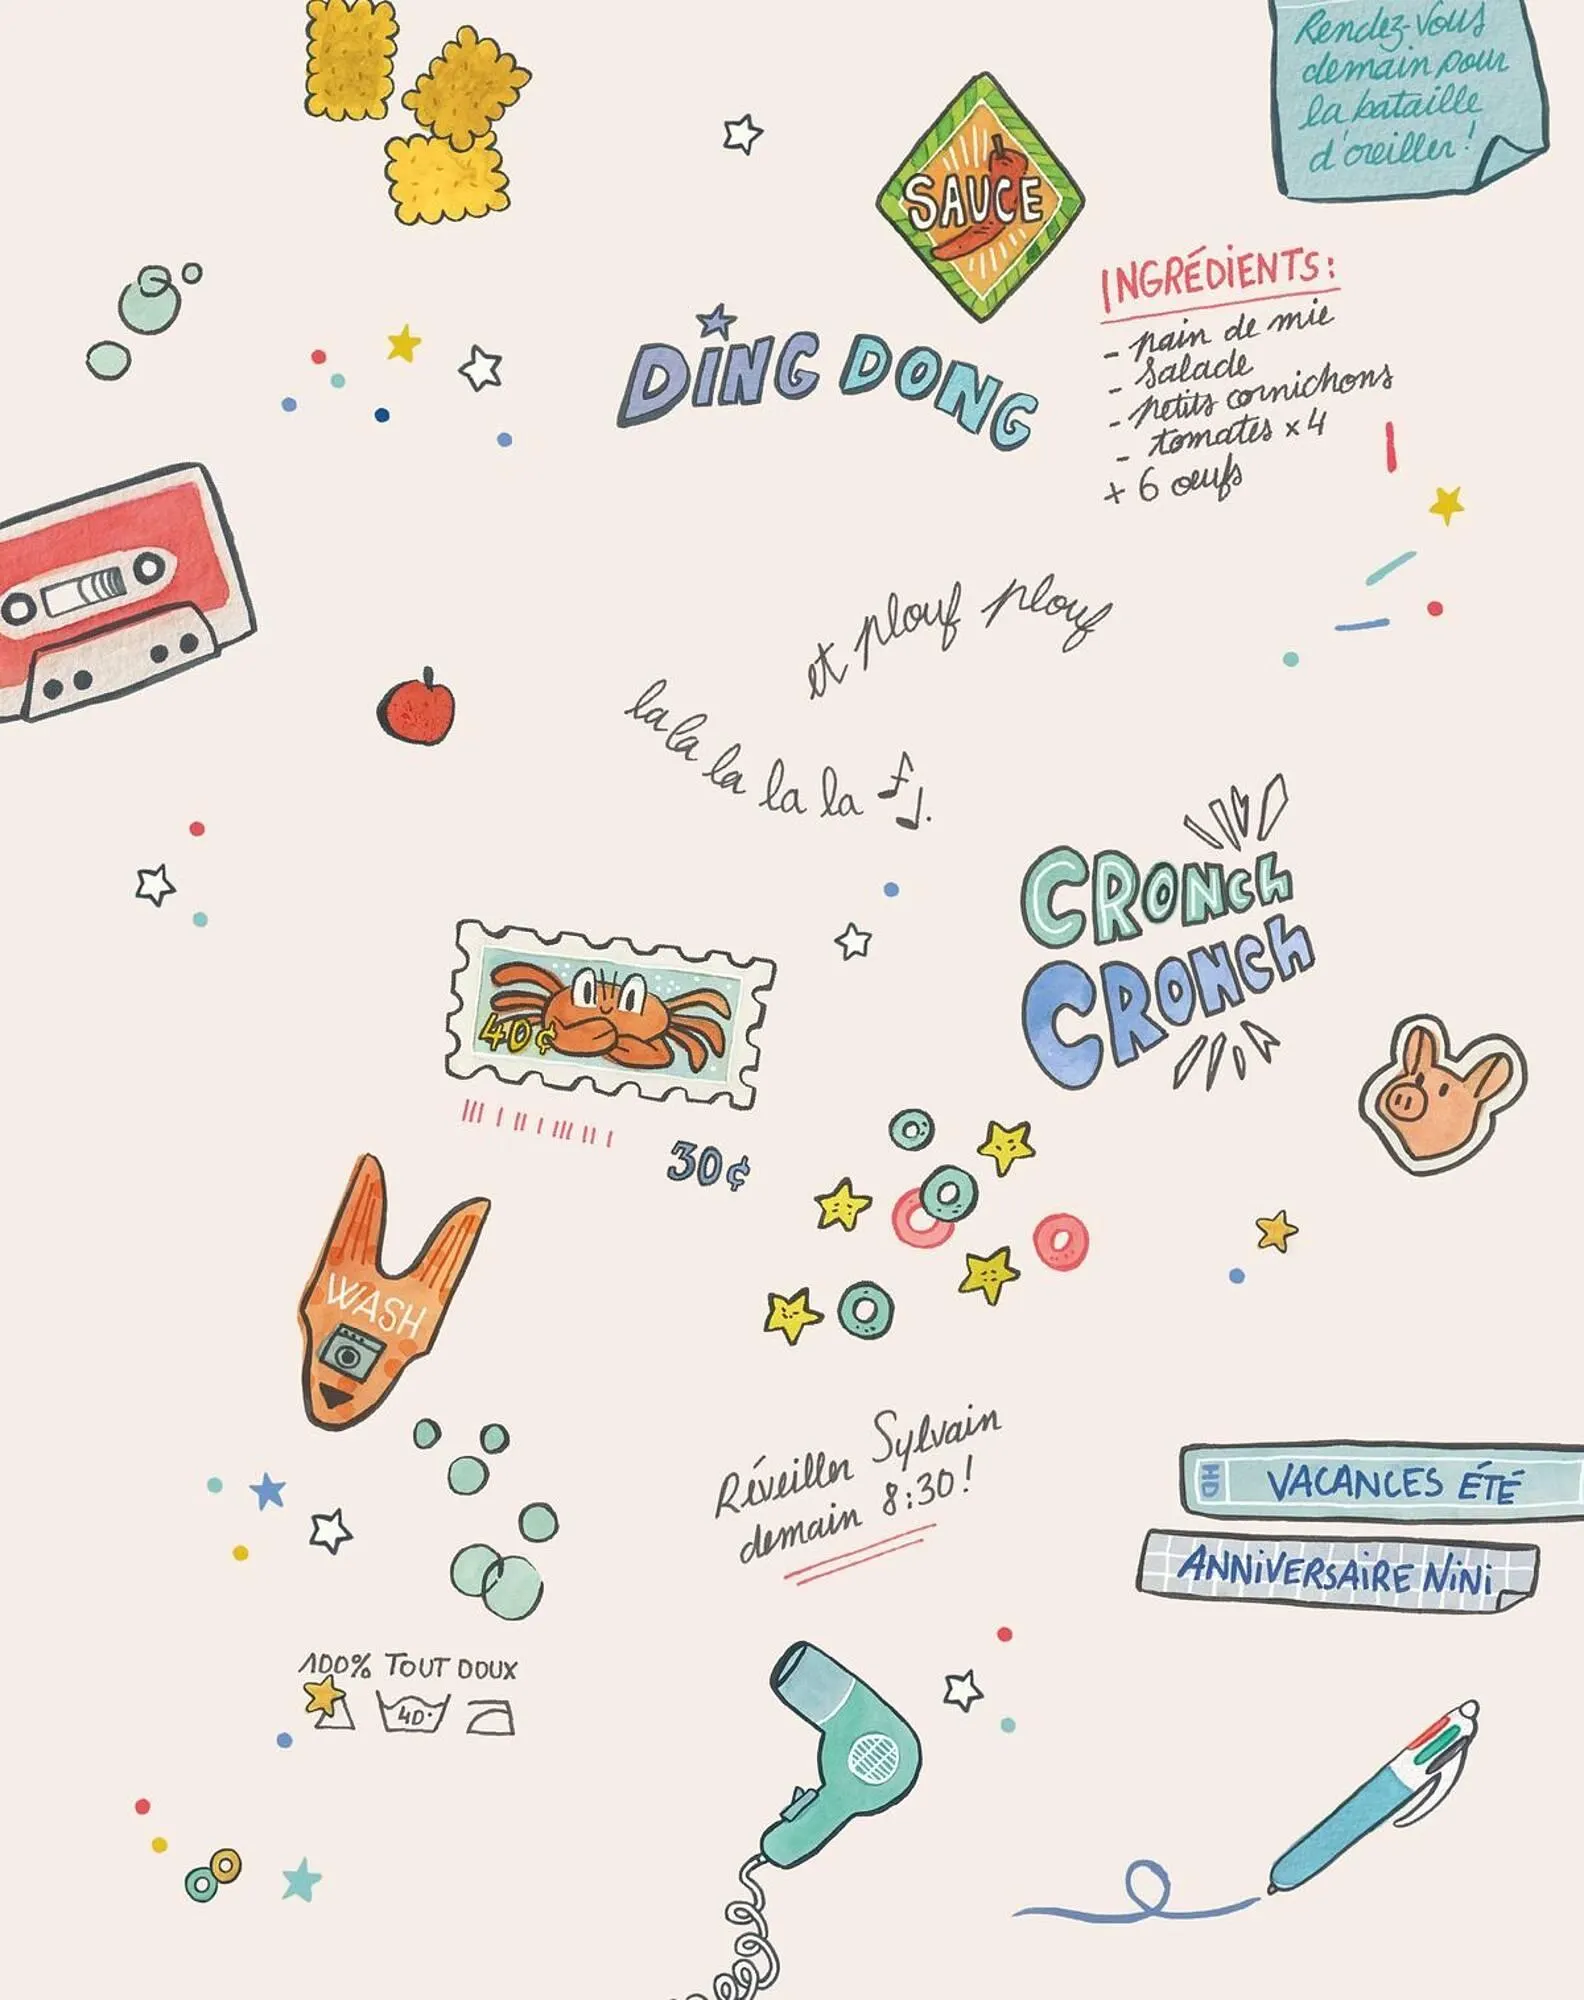 Rendez-vous
demain pour
la bataille
d'oreiller!
SAUCE
INGRÉDIENTS:
- pain de mie
- salade
- petits cornichons
- tomates x4
+ 6 œufs
DiNG DONG
et plouf plouf
la la la la la
CRONCh
CRONCh
40¢
30¢
WASH
Réveiller Sylvain
demain 8:30!
HD
VACANCES ÉTÉ
ANNiVERSAiRE NiNi
100% TOUT DOUX
40°